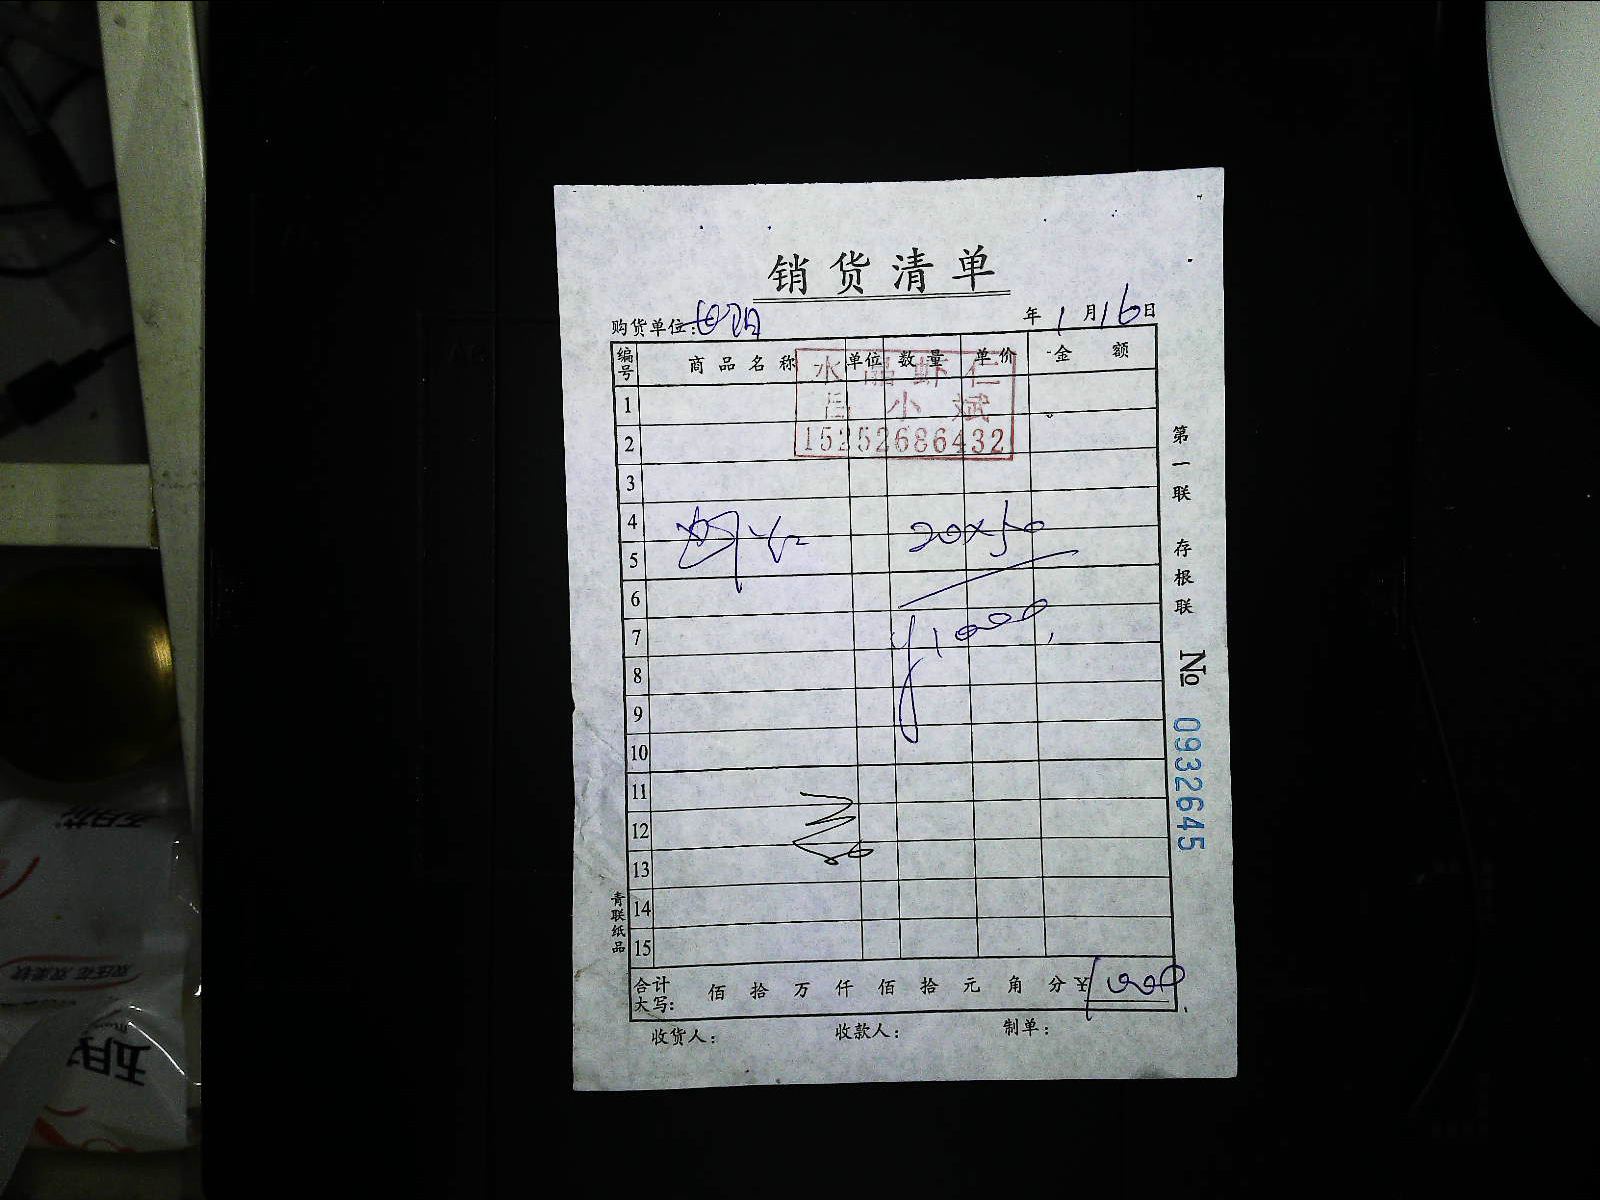 销货清单
购货单位: 年 1 月 16 日
编号 商品名称 单位 数量 单价 金额
水晶虾仁
小斌
15252686432
1
2
3
4 虾仁 20×50
5
6
7 ¥1000
8
9
10
11
12
13
14
15
合计大写: 佰 拾 万 仟 佰 拾 元 角 分 ¥1000
收货人: 收款人: 制单:
第一联 存根联
№ 0932645
青联纸品
五月花
五月花